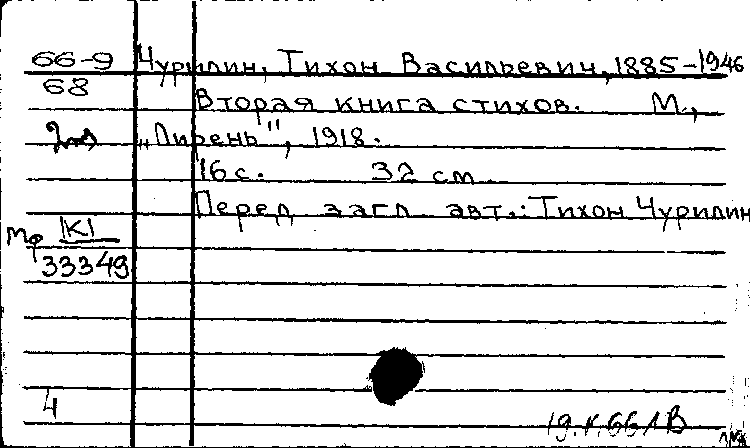 66-9 Чурилин, Тихон Васильевич, 1885-1946
68 Вторая книга стихов. М.,
„Лирень", 1918.
16 с. 32 см
Перед загл. авт.: Тихон Чурилин
Мф К1
33349
4